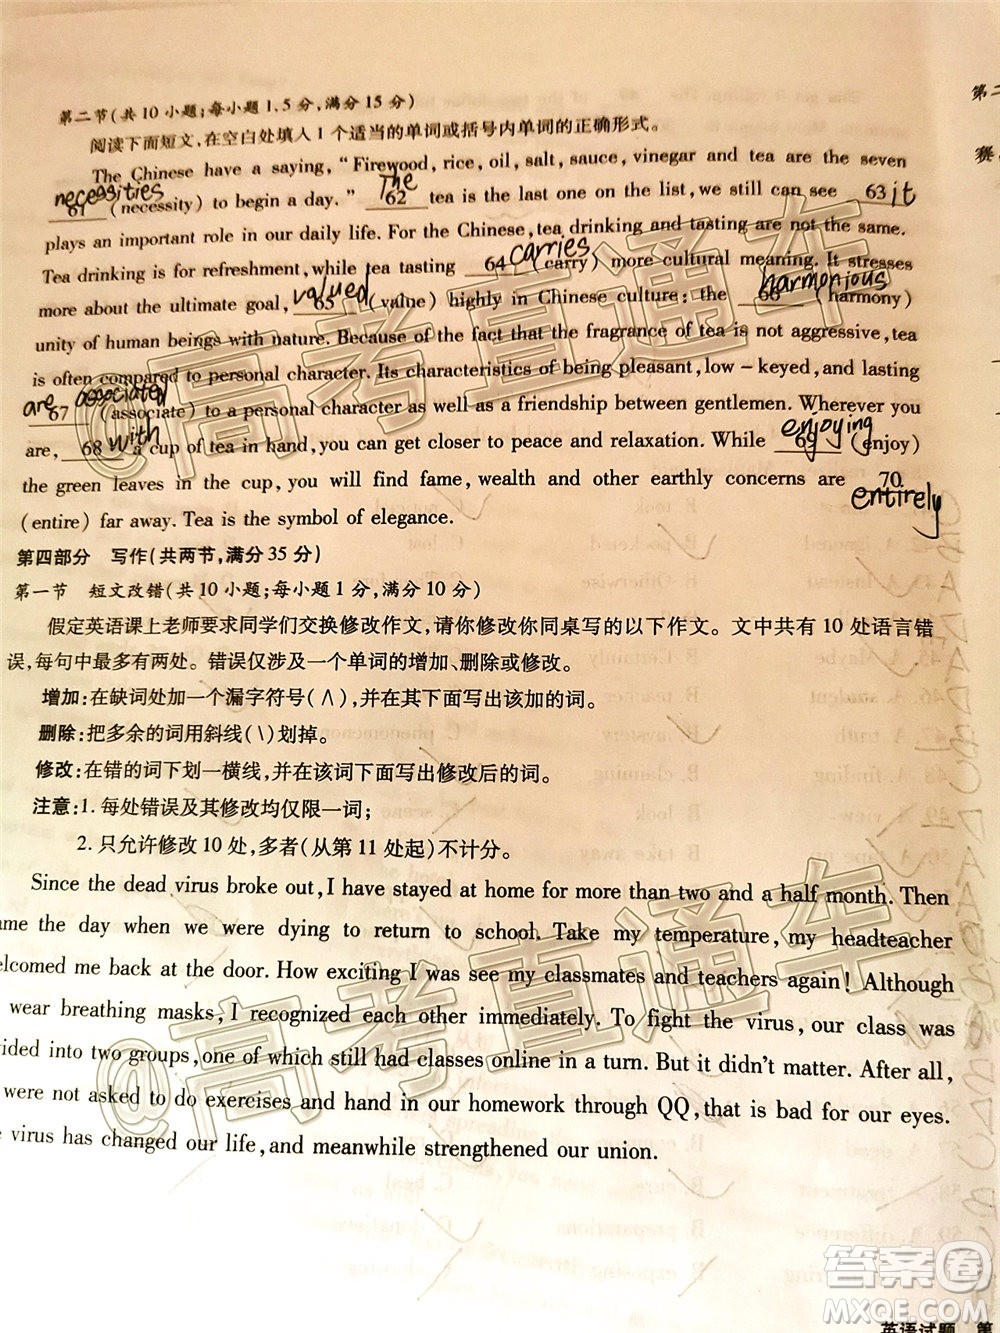 第二节(共 10 小题;每小题 1.5 分,满分 15 分)
阅读下面短文,在空白处填入 1 个适当的单词或括号内单词的正确形式。
The Chinese have a saying, "Firewood, rice, oil, salt, sauce, vinegar and tea are the seven
necessities The
61 (necessity) to begin a day." 62 tea is the last one on the list, we still can see 63 it
plays an important role in our daily life. For the Chinese, tea drinking and tasting are not the same.
carries
Tea drinking is for refreshment, while tea tasting 64 (carry) more cultural meaning. It stresses
valued harmonious
more about the ultimate goal, 65 (value) highly in Chinese culture: the 66 (harmony)
unity of human beings with nature. Because of the fact that the fragrance of tea is not aggressive, tea
is often compared to personal character. Its characteristics of being pleasant, low-keyed, and lasting
are associated
67 (associate) to a personal character as well as a friendship between gentlemen. Wherever you
with enjoying
are, 68 a cup of tea in hand, you can get closer to peace and relaxation. While 69 (enjoy)
the green leaves in the cup, you will find fame, wealth and other earthly concerns are 70
entirely
(entire) far away. Tea is the symbol of elegance.
第四部分 写作(共两节,满分 35 分)
第一节 短文改错(共 10 小题;每小题 1 分,满分 10 分)
假定英语课上老师要求同学们交换修改作文,请你修改你同桌写的以下作文。文中共有 10 处语言错
误,每句中最多有两处。错误仅涉及一个单词的增加、删除或修改。
增加:在缺词处加一个漏字符号(∧),并在其下面写出该加的词。
删除:把多余的词用斜线(\)划掉。
修改:在错的词下划一横线,并在该词下面写出修改后的词。
注意:1. 每处错误及其修改均仅限一词;
2. 只允许修改 10 处,多者(从第 11 处起)不计分。
Since the dead virus broke out, I have stayed at home for more than two and a half month. Then
ame the day when we were dying to return to school. Take my temperature, my headteacher
elcomed me back at the door. How exciting I was see my classmates and teachers again! Although
wear breathing masks, I recognized each other immediately. To fight the virus, our class was
vided into two groups, one of which still had classes online in a turn. But it didn't matter. After all,
were not asked to do exercises and hand in our homework through QQ, that is bad for our eyes.
e virus has changed our life, and meanwhile strengthened our union.
@高考直通车
@高考直通车
答案圈
MXQE.COM
英语试题 第
第二
赛